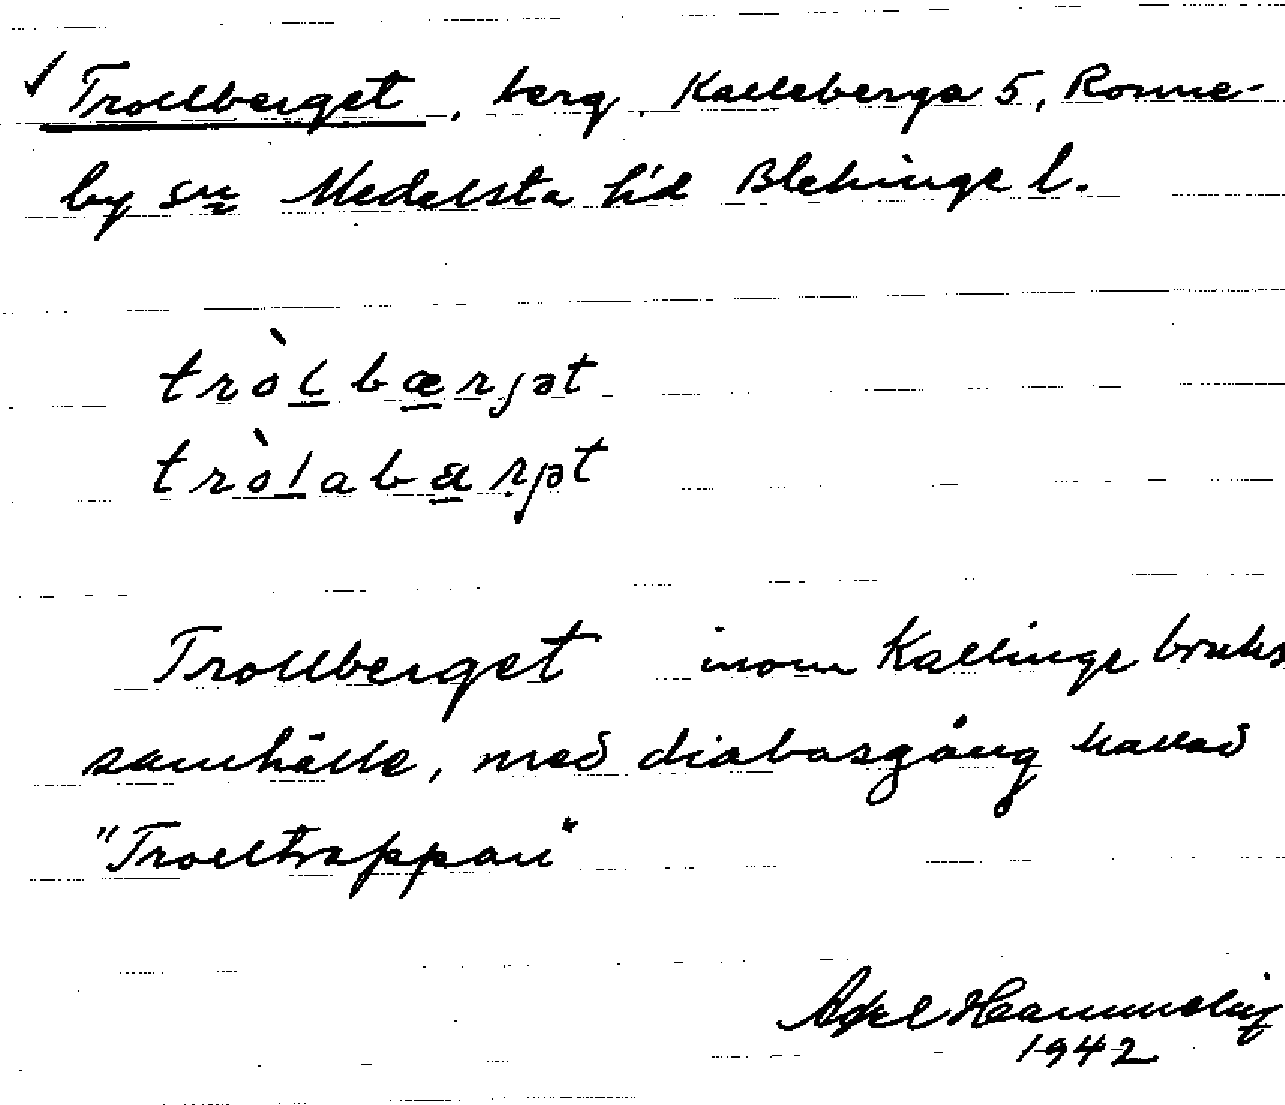 Trollberget, berg, Kalleberga 5, Ronne-
by sn Medelsta hd Blekinge l.
tròlbærjət
tròlabærjət
Trollberget inom Kallinge bruks
samhälle, med diabasgång kallad
"Trolltrappan"
Axel
1942